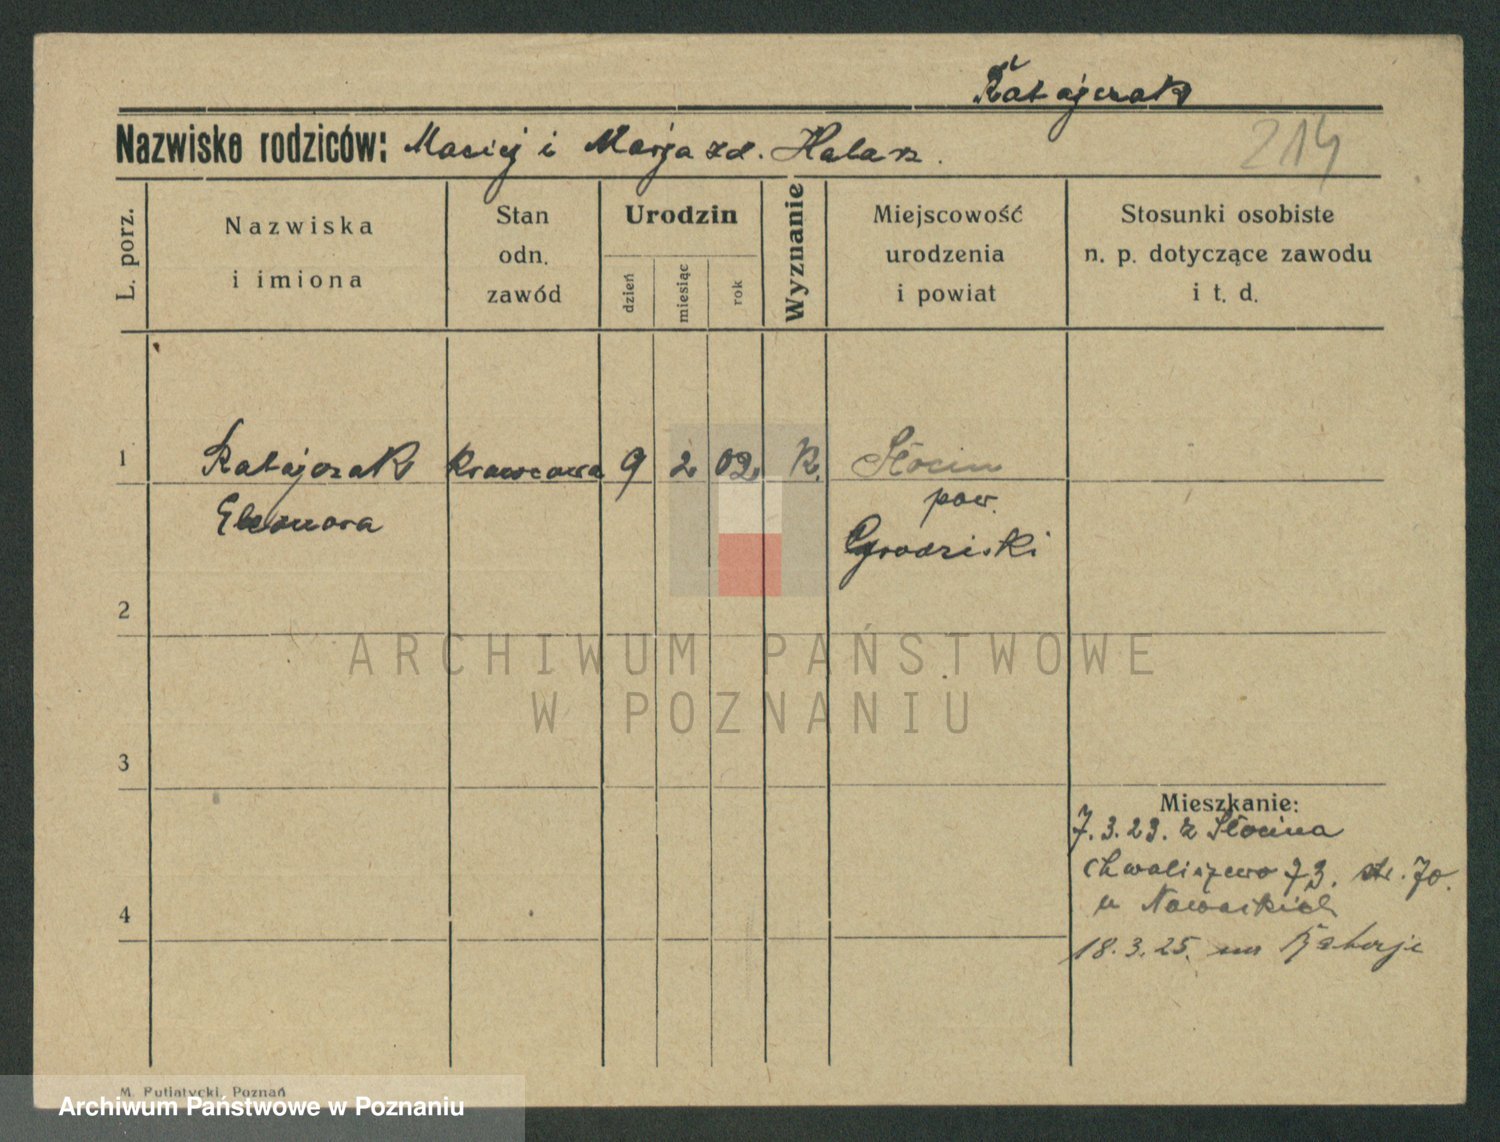 Ratajczak
Nazwisko rodziców: Maciej i Marja zd. Halasz.
214
L. porz.
Nazwiska
i imiona
Stan
odn.
zawód
Urodzin
dzień
miesiąc
rok
Wyznanie
Miejscowość
urodzenia
i powiat
Stosunki osobiste
n. p. dotyczące zawodu
i t. d.
1
Ratajczak
Eleonora
krawcowa
9
2
02.
K.
Słocin
pow.
Grodziski
2
3
4
Mieszkanie:
7.3.23. z Słocina
Chwaliszewo 73. str. 70.
u Nowackich
18.3.25. na
ARCHIWUM PAŃSTWOWE
W POZNANIU
M. Putiatycki, Poznań
Archiwum Państwowe w Poznaniu